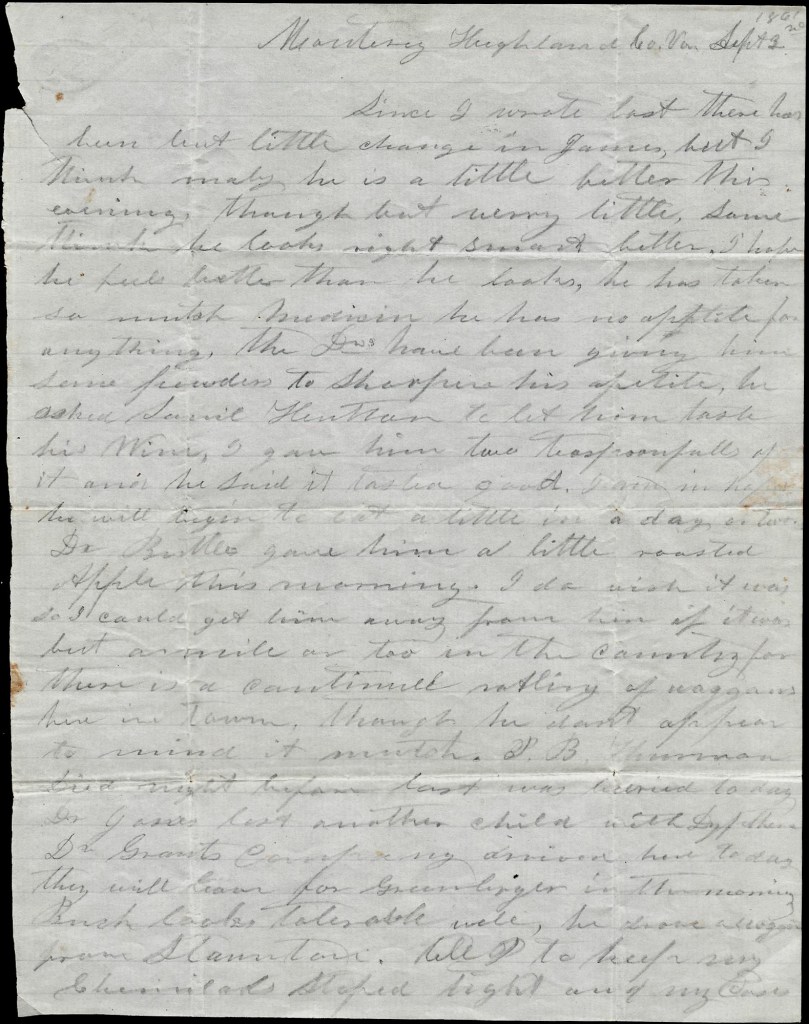 1861
Monterey Highland Co. Va. Sept 2nd
Since I wrote last there has
been but little change in James, but I
think maby he is a little better this
evening, though but verry little, some
think he looks right smart better. I hope
he feels better than he looks, he has taken
so mutch Medicin he has no aptite for
anything, the Drs have been giving him
some powders to sharpen his apetite, he
asked to let him taste
his Wine, I gave him two teaspoonfulls of
it and he said it tasted good. I am in hopes
he will begin to eat a little in a day or two.
Dr Butler gave him a little roasted
Apple this morning. I do wish it was
so I could get him away from hire if it was
but a mile or too in the country, for
there is a continuell ratling of waggons
here in town, though he dont appear
to mind it mutch. P. B. Thurman
died night before last was buried to day
Dr Jones lost another child with
Dr Grants Company arrived here to day
they will leave for Greenbryer in the morning
Bush looks tolerable well, he drove a waggon
from Staunton. tell P to keep my
Chemicals stoped tight and my Case